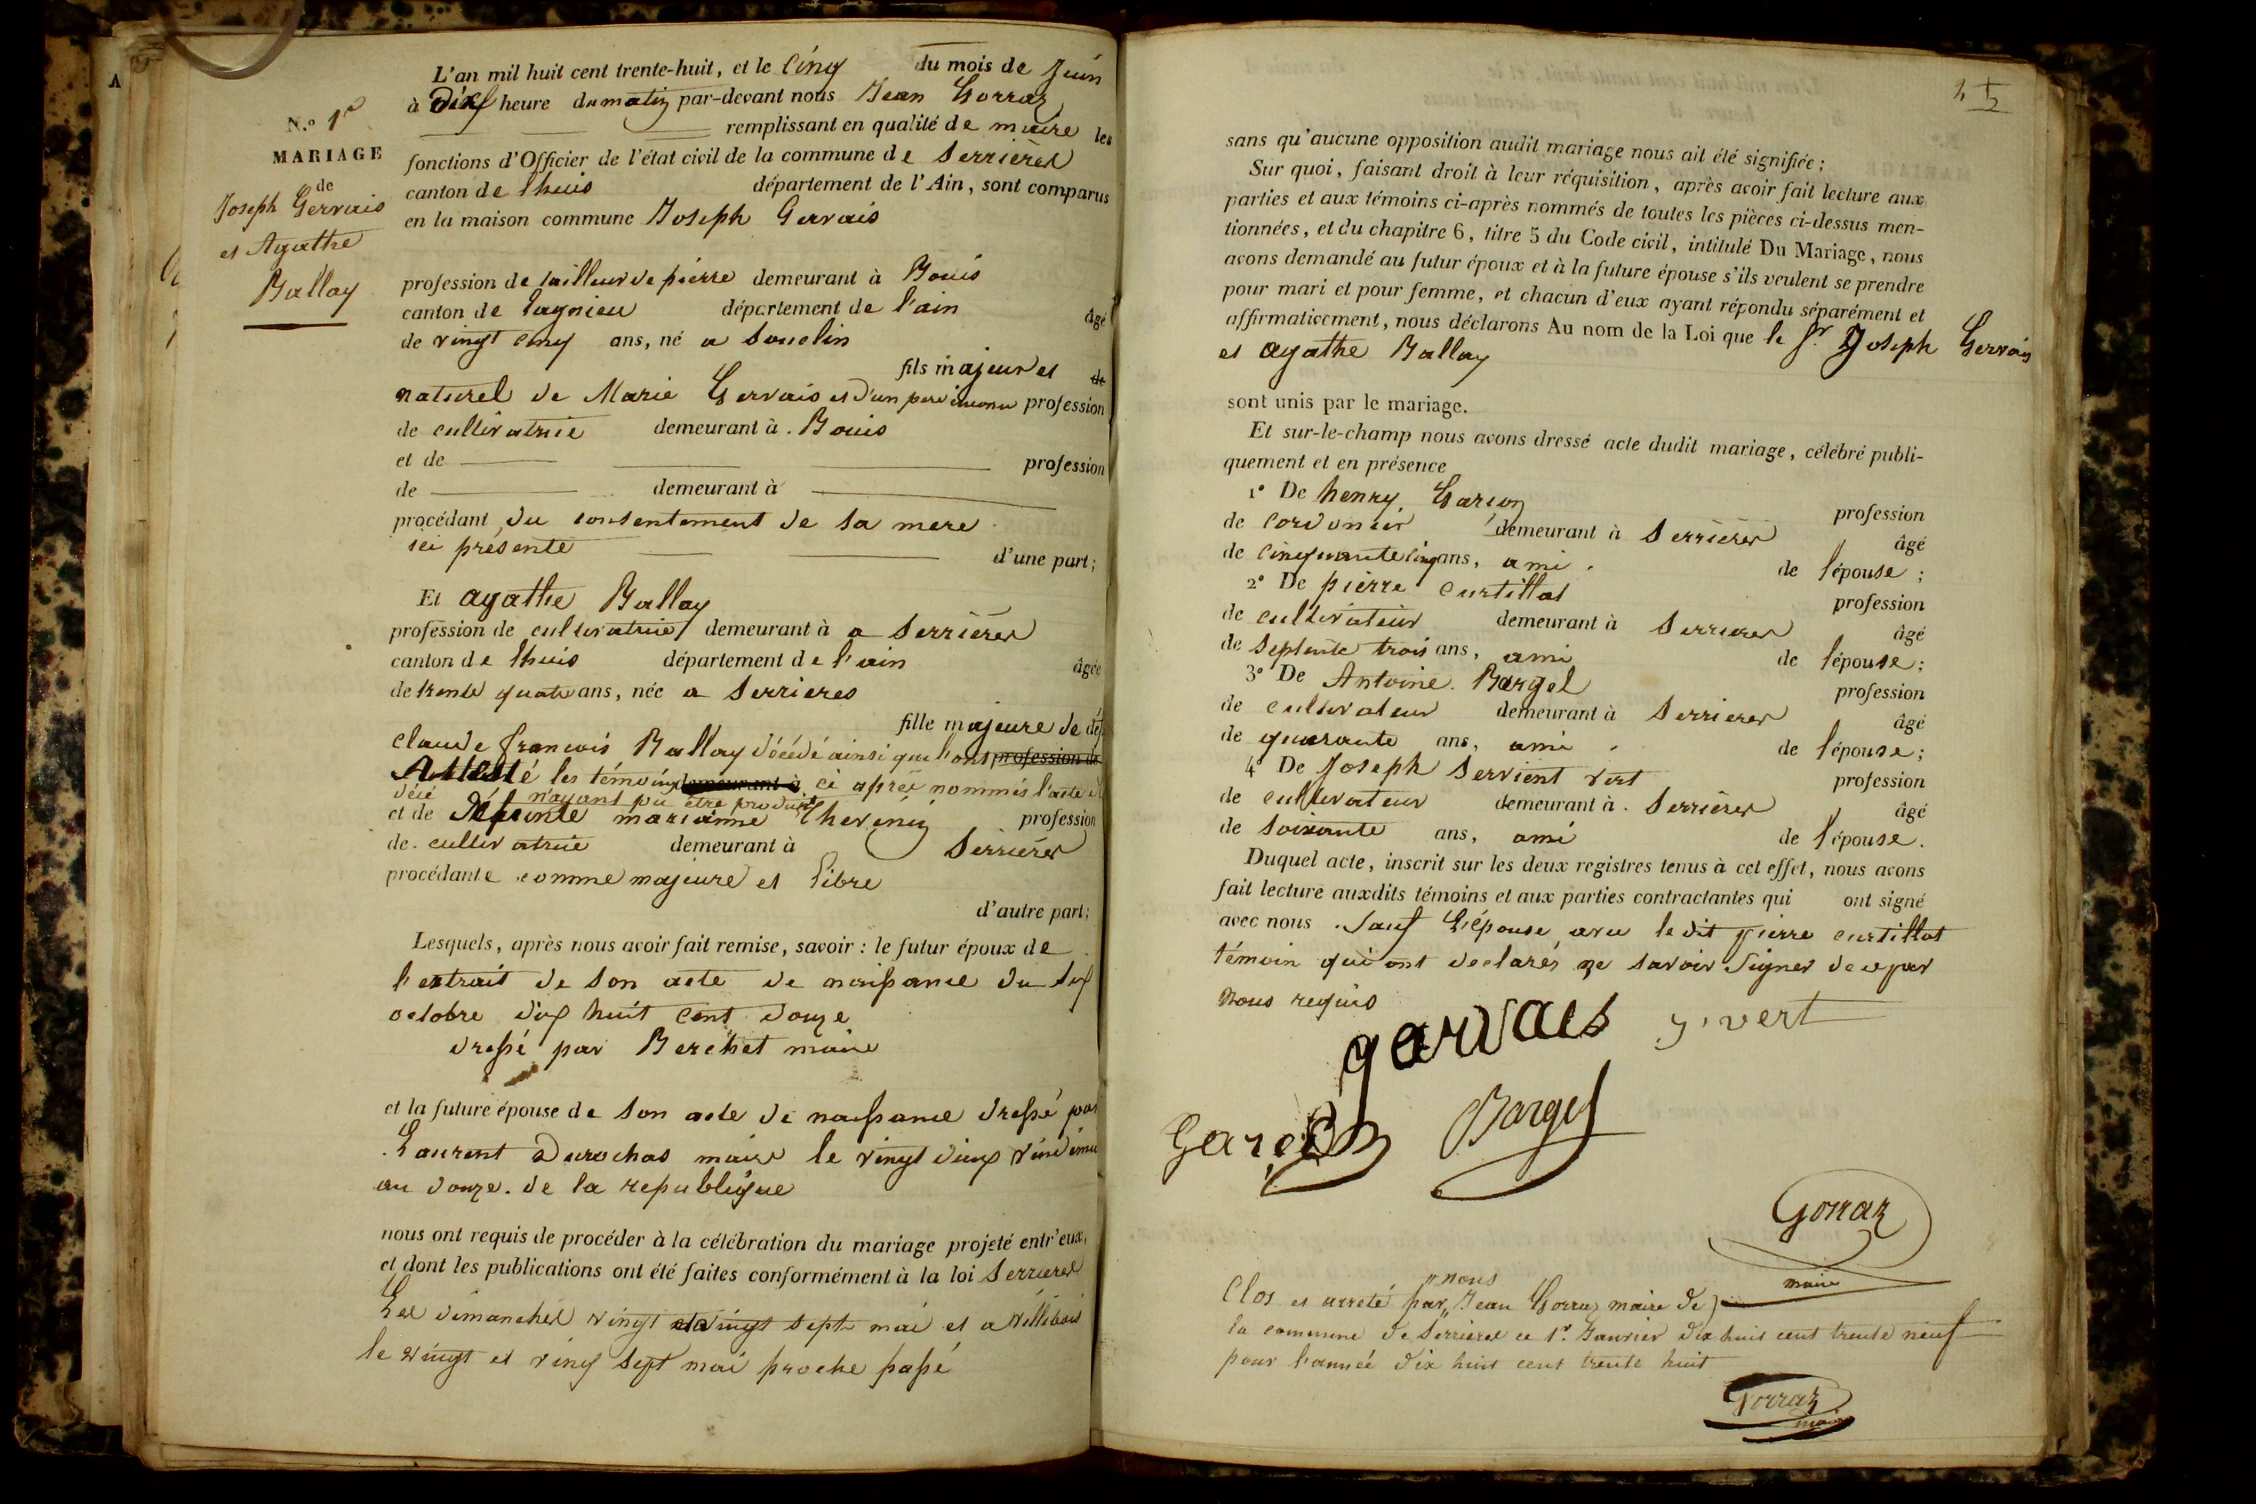 A
L'an mil huit cent trente-huit, et le cinq du mois de Juin
à dix heure du matin par-devant nous Jean Gorraz
remplissant en qualité de maire les
fonctions d'Officier de l'état civil de la commune de Serrières
canton de lhuis département de l'Ain, sont comparus
en la maison commune Joseph Gervais
N.o 1er
MARIAGE
de
Joseph Gervais
et Agathe
Ballay
profession de tailleur de pierre demeurant à Bouis
canton de lagnieu département de l'ain âgé
de vingt cinq ans, né a Souclin
fils majeur et de
naturel de Marie Gervais et d'un pere inconnu profession
de cultivatrice demeurant à Bouis
et de profession
de demeurant à
procédant du consentement de sa mere
ici présente d'une part;
Et agathe Ballay
profession de cultivatrice demeurant à a Serrières
canton de lhuis département de l'ain âgée
de trente quatre ans, née a Serrieres
fille majeure de
Claude francois Ballay décédé ainsi que l'ont profession de
Attesté les témoins demeurant à ci après nommés l'acte
n'ayant pu être produit
et de Défunte marianne Thevenin profession
de cultivatrice demeurant à Serrières
procédante comme majeure et libre
d'autre part;
Lesquels, après nous avoir fait remise, savoir : le futur époux de
l'extrait de son acte de naissance du six
octobre dix huit cent douze
dressé par Berthet maire
et la future épouse de son acte de naissance dressé par
Laurent Durochas maire le vingt deux
an douze de la republique
nous ont requis de procéder à la célébration du mariage projeté entr'eux,
et dont les publications ont été faites conformément à la loi Serrieres
Les dimanches vingt et vingt sept mai et a villebois
le vingt et vingt sept mai proche passé
sans qu'aucune opposition audit mariage nous ait été signifiée ;
Sur quoi, faisant droit à leur réquisition, après avoir fait lecture aux
parties et aux témoins ci-après nommés de toutes les pièces ci-dessus men-
tionnées, et du chapitre 6, titre 5 du Code civil, intitulé Du Mariage, nous
avons demandé au futur époux et à la future épouse s'ils veulent se prendre
pour mari et pour femme, et chacun d'eux ayant répondu séparément et
affirmativement, nous déclarons Au nom de la Loi que le Sr Joseph Gervais
et agathe Ballay
sont unis par le mariage.
Et sur-le-champ nous avons dressé acte dudit mariage, célébré publi-
quement et en présence
1° De henry Garçon profession
de cordonier demeurant à Serrières âgé
de cinquante cinq ans, ami de l'épouse ;
2° De pierre Curtillat profession
de cultivateur demeurant à Serrieres âgé
de septente trois ans, ami de l'épouse ;
3° De Antoine Bargel profession
de cultivateur demeurant à Serrieres âgé
de quarante ans, ami de l'épouse ;
4° De Joseph Servient vert profession
de cultivateur demeurant à Serrières âgé
de soixante ans, ami de l'épouse.
Duquel acte, inscrit sur les deux registres tenus à cet effet, nous avons
fait lecture auxdits témoins et aux parties contractantes qui ont signé
avec nous sauf L'épouse avec le dit pierre curtillat
témoin qui ont declarés ne savoir signer de ce par
nous requis
garvais
vert
Garcon
Bargel
Gorraz
maire
nous
Clos et arreté par Jean Gorraz maire de
la commune de Serrieres ce 1er Janvier dix huit cent trente neuf
pour l'année dix huit cent trente huit
Gorraz
maire